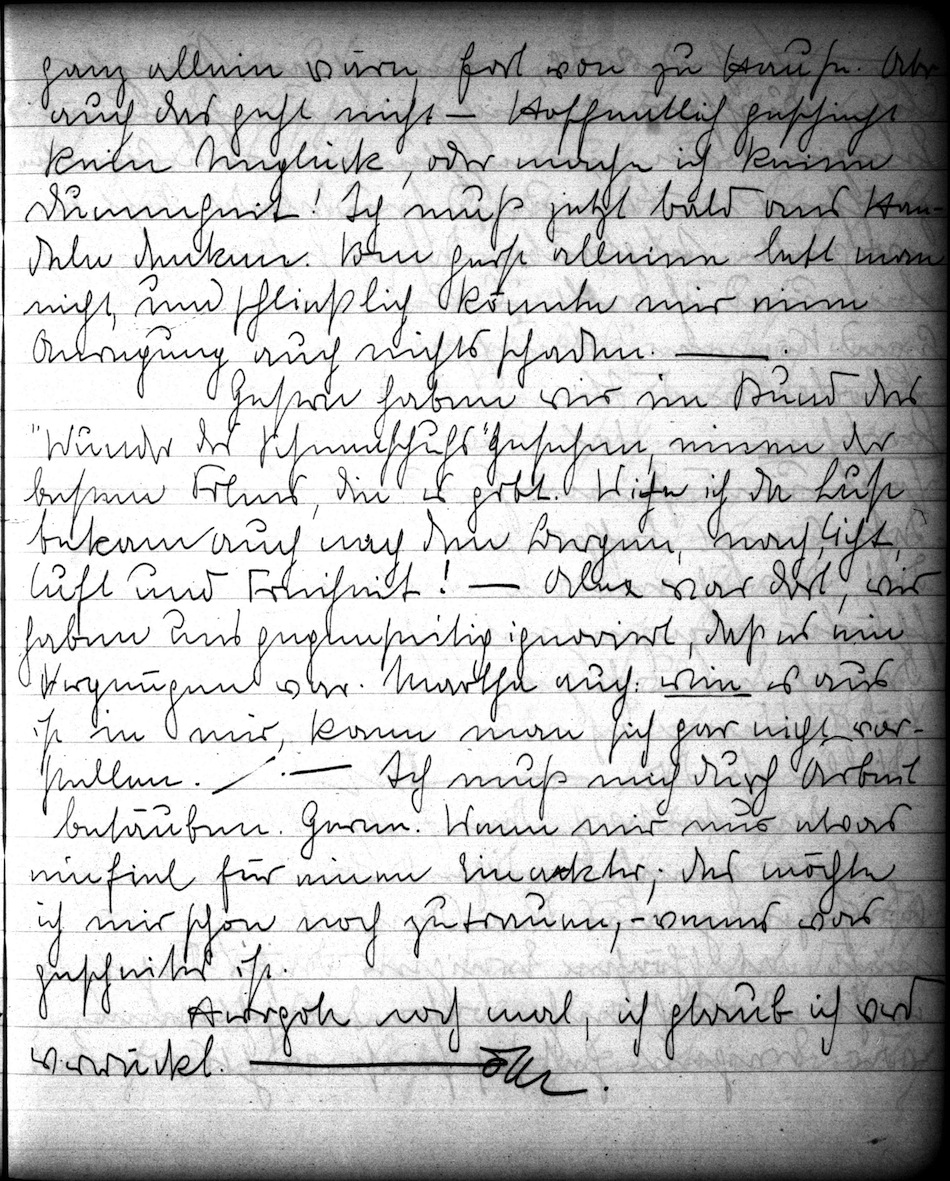 ganz allein wärn, fort von zu Hause. Aber
auch das geht nicht — Hoffentlich geschieht
kein Unglück, oder mache ich keine
Dummheit! Ich muß jetzt bald ans Han-
deln denken. Vom Geist alleine lebt man
nicht, und schließlich könnte mir eine
Anregung auch nichts schaden. —
Gestern haben wir im Bund das
"Wunder des Schneeschuhs" gesehen, einen der
besten Films, die es gibt. Wie ich da Lust
bekam auch nach den Bergen, nach Licht,
Luft und Freiheit! — war dort, wir
haben uns gegenseitig ignoriert, daß es ein
Vergnügen war. Martha auch. wie es aus
ist in mir, kann man sich gar nicht vor-
stellen. — Ich muß mich durch Arbeit
betäuben. Gerne. Wenn mir nur etwas
einfiel für einen Einakter; das möchte
ich mir schon noch zutrauen, - wenns was
gescheites ist.
Herrgott noch mal, ich glaub ich werd
verrückt. —